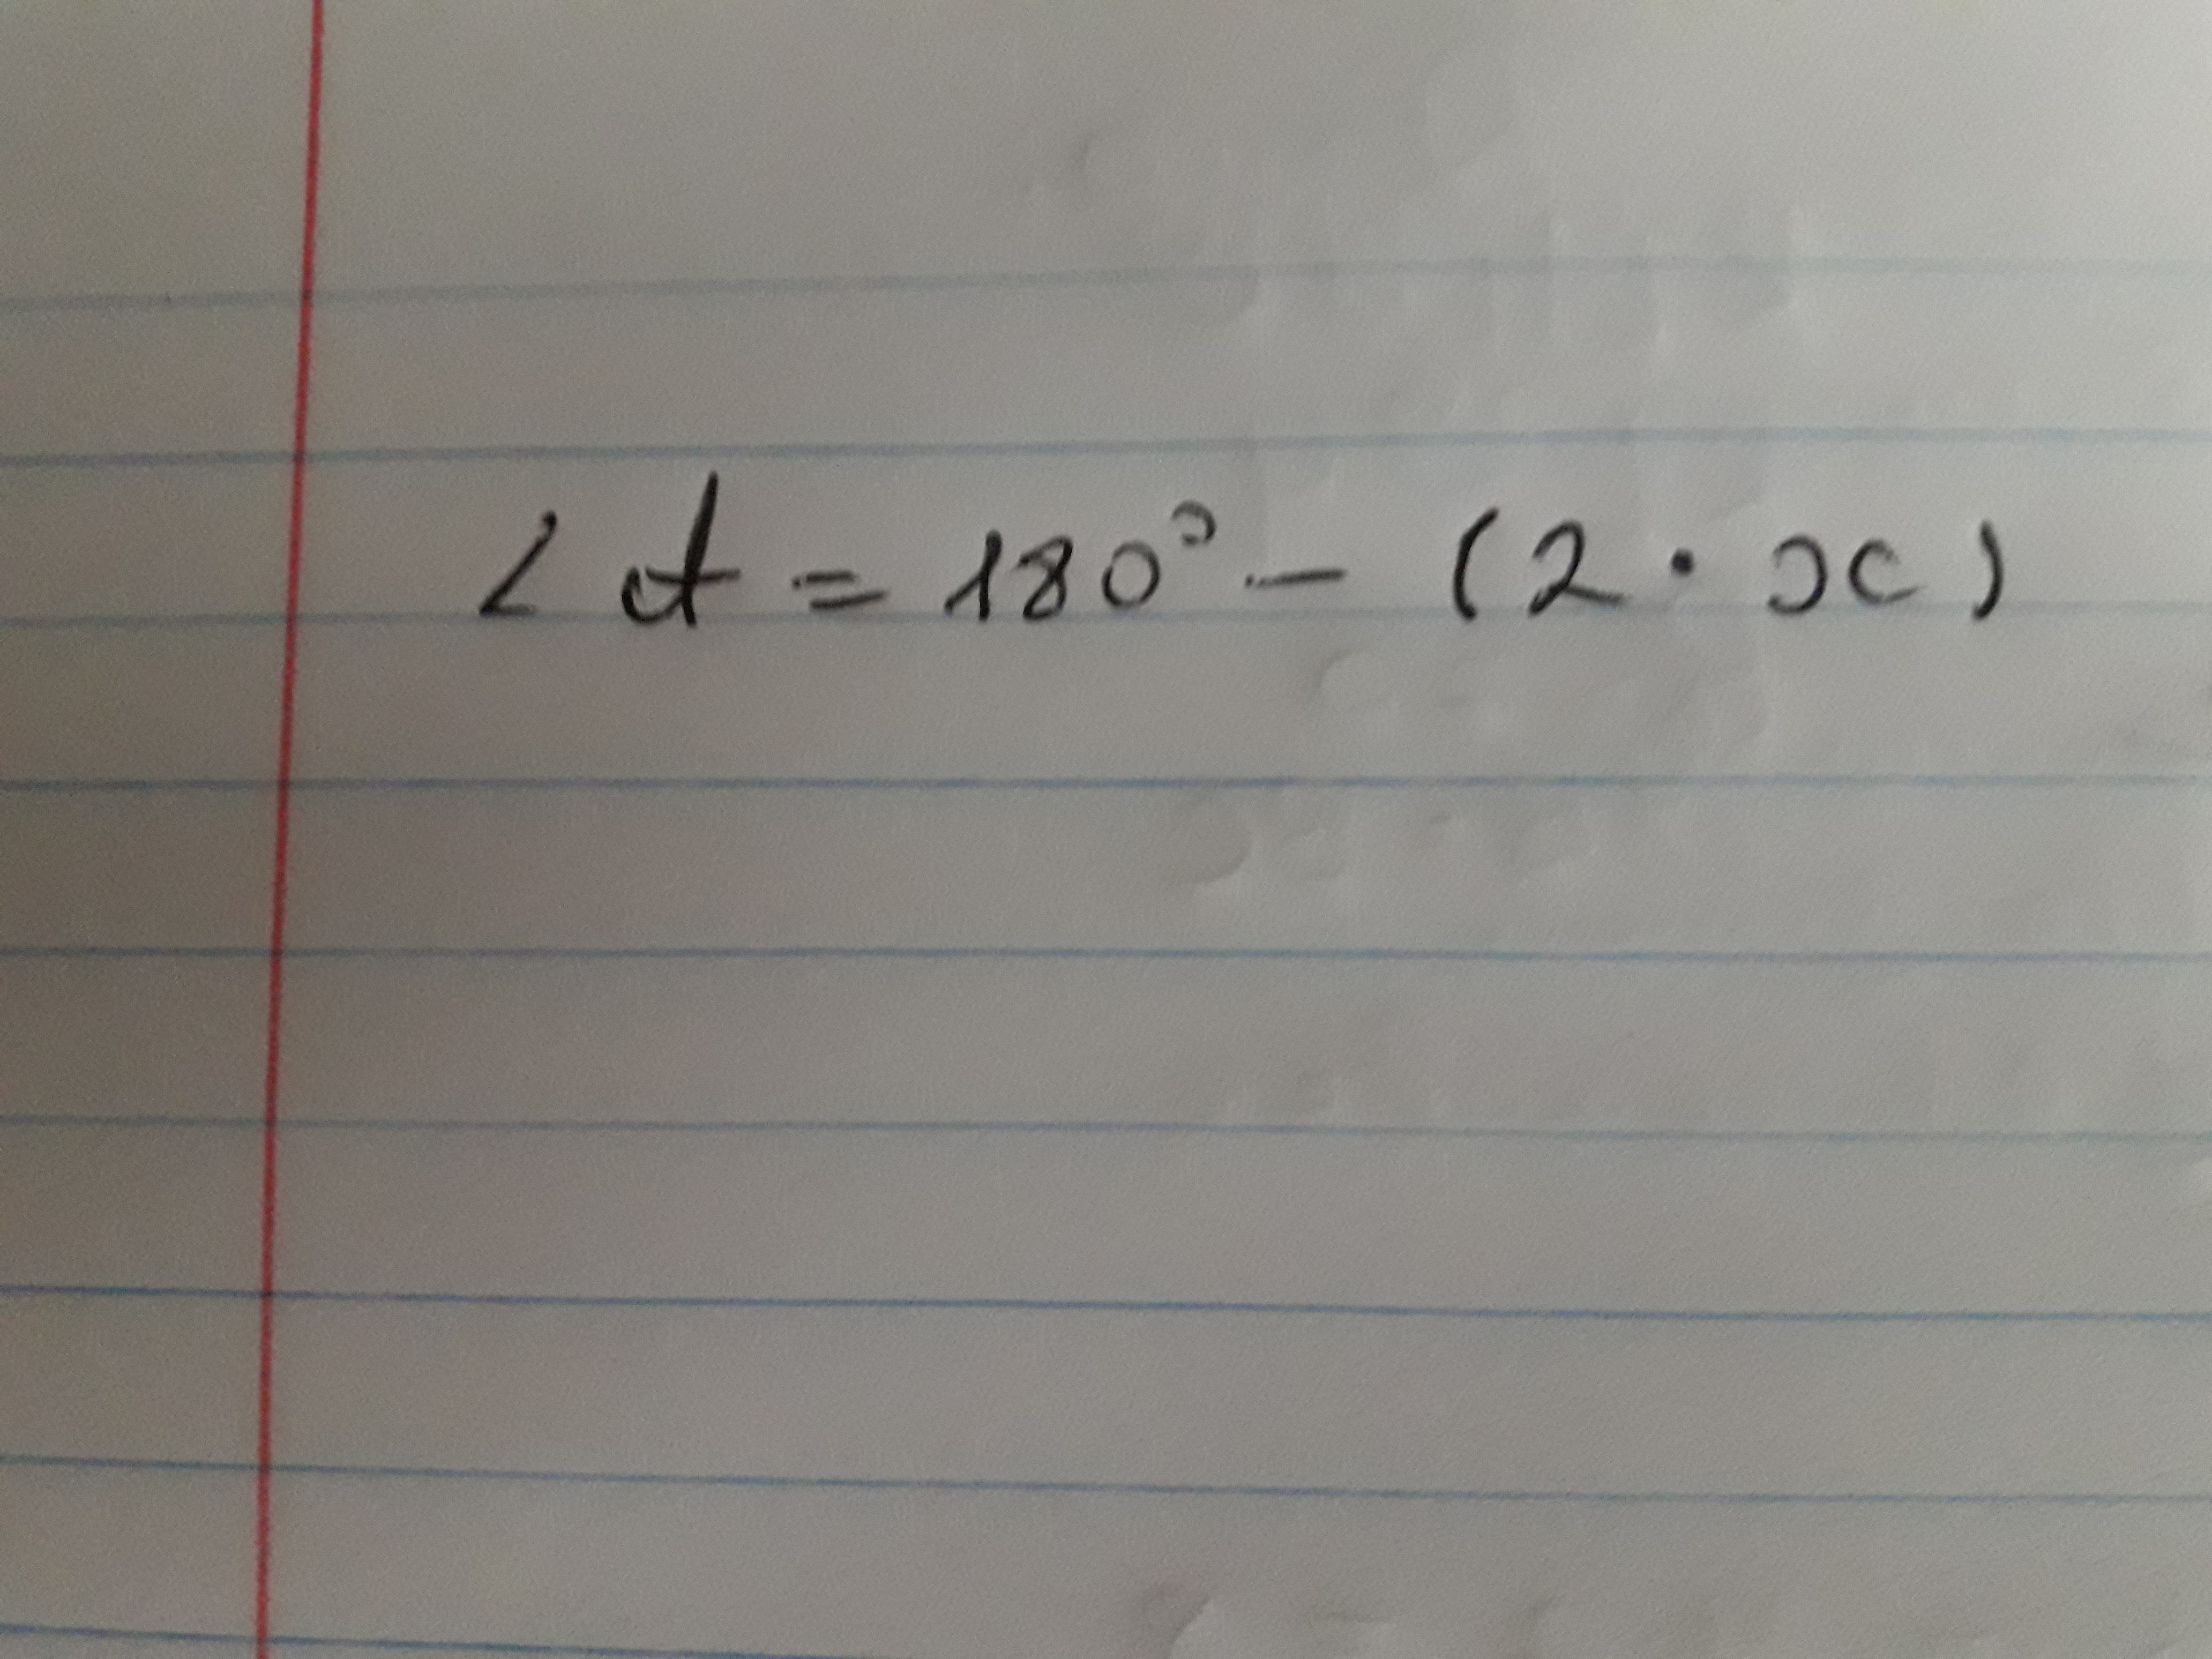 ∠t = 180° - (2 · x)